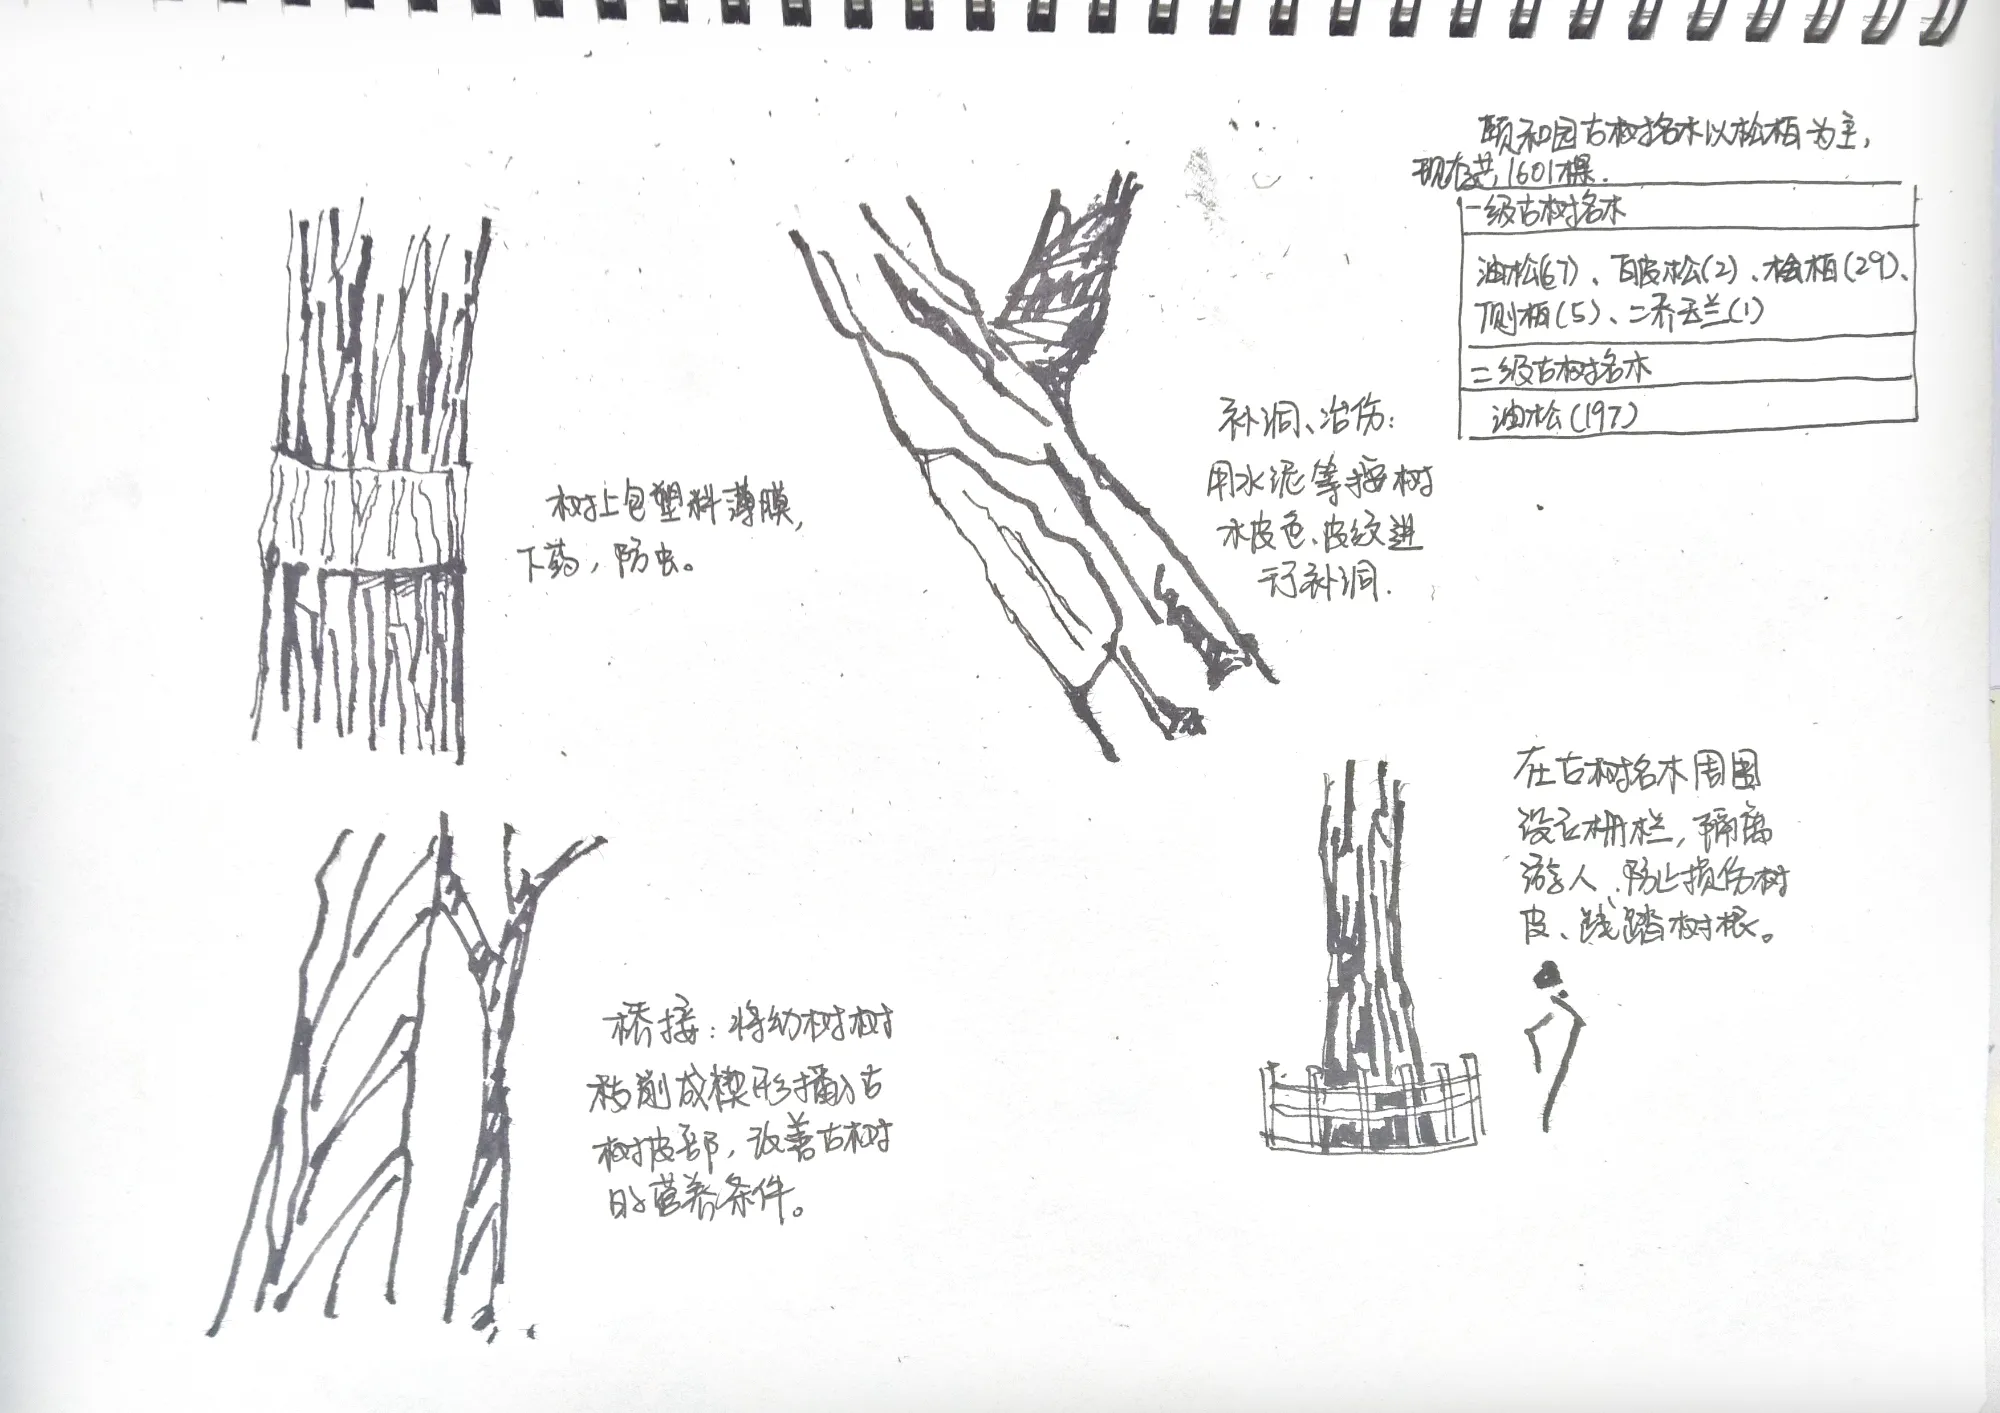 颐和园古树名木以松柏为主，
现存共1601棵.
一级古树名木
油松(67)、白皮松(2)、桧柏(29)、
侧柏(5)、二乔玉兰(1)
二级古树名木
油松(197)
树上包塑料薄膜，
下药，防虫。
补洞、治伤：
用水泥等按树
木皮色、皮纹进
行补洞.
桥接：将幼树树
枝削成楔形插入古
树皮部，改善古树
的营养条件。
在古树名木周围
设立栅栏，隔离
游人、防止损伤树
皮、践踏树根。